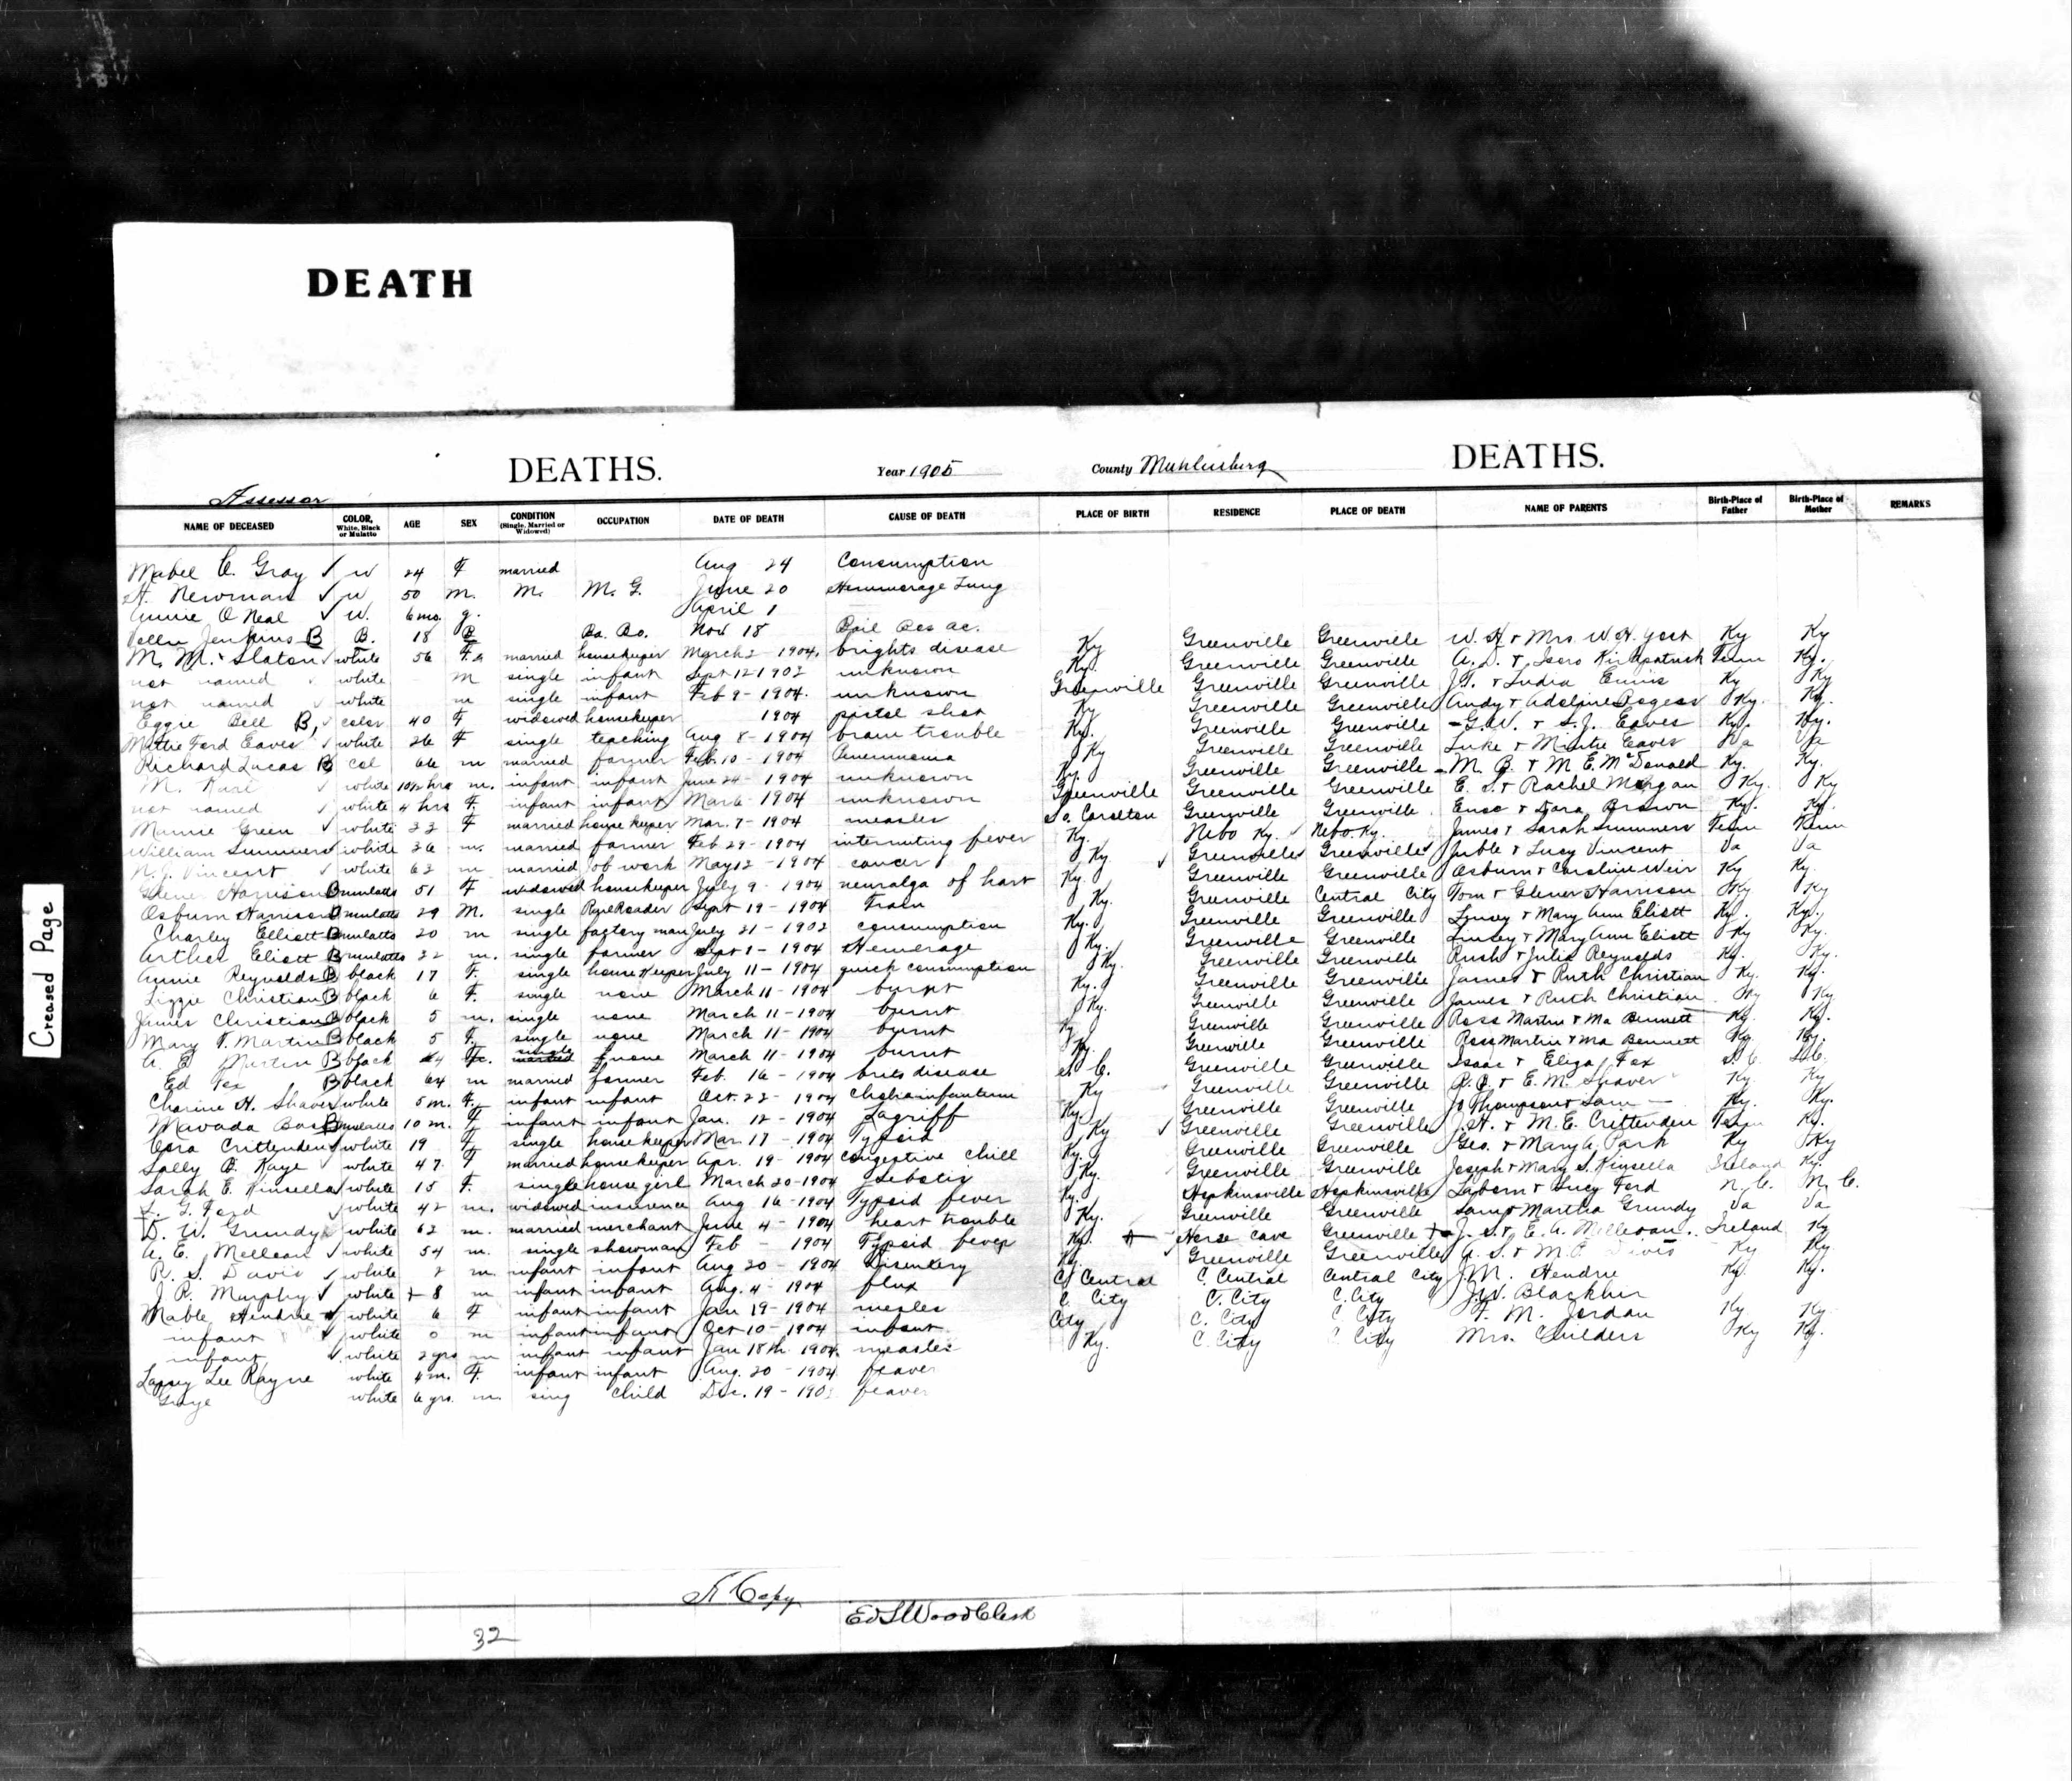 DEATH
Creased Page
DEATHS. Year 1905 County Muhlenberg DEATHS.
Assessor
NAME OF DECEASED COLOR, White, Black or Mulatto AGE SEX CONDITION (Single, Married or Widowed) OCCUPATION DATE OF DEATH CAUSE OF DEATH PLACE OF BIRTH RESIDENCE PLACE OF DEATH NAME OF PARENTS Birth-Place of Father Birth-Place of Mother REMARKS
Mabel E. Gray w 24 F married Aug 24 Consumption
Newman w 50 m. M. M. G. June 20 Hemmorage Lung
Annie O Neal W. 6 mo. g. April 1
Jenkins B B. 18 Nov 18
M. M. Slaton white 56 F. married housekeeper March 2 - 1904. brights disease Ky Greenville Greenville W. H + Mrs W. H. Yost Ky Ky
not named white m single infant Sept 12 1903 unknown Ky. Greenville Greenville A. D. + Kirkpatrick Tenn Ky.
not named white m single infant Feb 9 - 1904. unknown Greenville Greenville Greenville J. T. + Ludia Ennis Ky Ky
Eggie Bell B, color 40 F widowed housekeeper 1904 pistol shot Ky Greenville Greenville Andy + Adeline Bogess Ky. Ky.
Mattie Ford Eaves white 26 F single teaching Aug 8 - 1904 brain trouble Ky. Greenville Greenville G. W. + S. J. Eaves Ky. Ky.
Richard Lucas B col 66 m married farmer Feb. 10 - 1904 Ky Greenville Greenville Luke + Eaves Va Va
M. white hrs m. infant infant June 24 - 1904 unknown Ky. Greenville Greenville M. B. + M. E. McDonald Ky. Ky.
not named white 4 hrs F. infant infant Mar 6 - 1904 unknown Greenville Greenville Greenville E. S. + Rachel Morgan Ky. Ky
Minnie Green white 33 F married house keeper Mar. 7 - 1904 measles So. Carolton Greenville Greenville + Dora Brown Ky. Ky.
William Summers white 36 m. married farmer Feb 29 - 1904 fever Ky. Nebo Ky. Nebo Ky. James + Sarah Summers Tenn Tenn
Vincent white 63 m married job work May 12 - 1904 cancer Ky Greenville Greenville + Lucy Vincent Va Va
Harrison B mulatto 51 F widowed housekeeper July 9 - 1904 neuralga of hart Ky. Greenville Greenville Osburn + Caroline Weir Ky Ky.
Osburn Harrison B mulatto 29 M. single Rail Roader Sept 19 - 1904 Train Ky. Greenville Central City Tom + Harrison Ky Ky
Charley Elliott B mulatto 20 m single factory man July 21 - 1903 consumption Ky. Greenville Greenville Linsey + Mary Ann Eliott Ky. Ky.
Arther Eliott B mulatto 22 m. single farmer Sept 1 - 1904 Hemerage Ky. Greenville Greenville Linsey + Mary Ann Eliott Ky Ky.
Annie Reynolds B black 17 F. single house keeper July 11 - 1904 quick consumption Ky. Greenville Greenville Rush + Julia Reynolds Ky. Ky.
Lizzie Christian B black 6 F. single none March 11 - 1904 burnt Ky. Greenville Greenville James + Ruth Christian Ky. Ky.
James Christian B black 5 m. single none March 11 - 1904 burnt Ky. Greenville Greenville James + Ruth Christian Ky Ky
Mary F. Martin B black 5 F. single none March 11 - 1904 burnt Ky Greenville Greenville Ross Martin + Ma Bennett Ky. Ky.
A. E. Martin B black 4 single none March 11 - 1904 burnt Ky. Greenville Greenville Ross Martin + Ma Bennett Ky. Ky.
Ed Fex B black 64 m married farmer Feb. 16 - 1904 bries disease S. C. Greenville Greenville Isaac + Eliza Fex S. C. S. C.
H. Shaver white 5 m. F. infant infant Oct. 23 - 1904 cholrainfantum Ky Greenville Greenville R. O. + E. M. Shaver Ky Ky
10 m. F infant infant Jan. 12 - 1904 Lagriff Ky. Greenville Greenville Jo Thompson + Ky. Ky.
Cora Crittenden white 19 F single housekeeper Mar. 17 - 1904 Typoid Ky Greenville Greenville J. H. + M. E. Crittenden Ky.
Sally B. Kaye white 47. F married housekeeper Apr. 19 - 1904 congestive chill Ky. Greenville Greenville Geo. + Mary A. Park Ky Ky
Sarah E. Kinsella white 15 F. single house girl March 20 - 1904 Ky. Greenville Greenville Joseph + Mary S. Kinsella Ireland Ky.
Ford white 42 m. widowed insurence Aug 16 - 1904 Typoid fever Ky. Hopkinsville Hopkinsville Laborn + Lucy Ford N. C. N. C.
D. W. Grundy white 63 m. married merchant June 4 - 1904 heart trouble Ky. Greenville Greenville Sam + Martha Grundy Va Va
A. E. white 54 m. single showman Feb - 1904 Typoid fever Ky. Horse Cave Greenville J. S. + E. A. Ireland Ky
R. S. Davis white 2 m. infant infant Aug 20 - 1904 Disentery Ky. Greenville Greenville A. S. + M. Davis Ky Ky.
J. R. Murphy white 8 m infant infant Aug. 4 - 1904 flux C. Central C. Central Central City J. M. Hendrie Ky. Ky.
Mable Hendrie white 6 F infant infant Jan 19 - 1904 mesles C. City C. City C. City J. W. Blackbur
infant white 0 m infant infant Oct 10 - 1904 infant City C. City C. City F. M. Jordan Ky Ky
infant white 2 yrs m infant infant Jan 18th 1904. measles Ky. C. City C. City Mrs. Childers Ky Ky.
Lapsey Lee Rayne white 4 m. F. infant infant Aug. 20 - 1904 feaver
white 6 yrs. m. sing child Dec. 19 - 190 feaver
A Copy
Ed S Wood Clerk
32